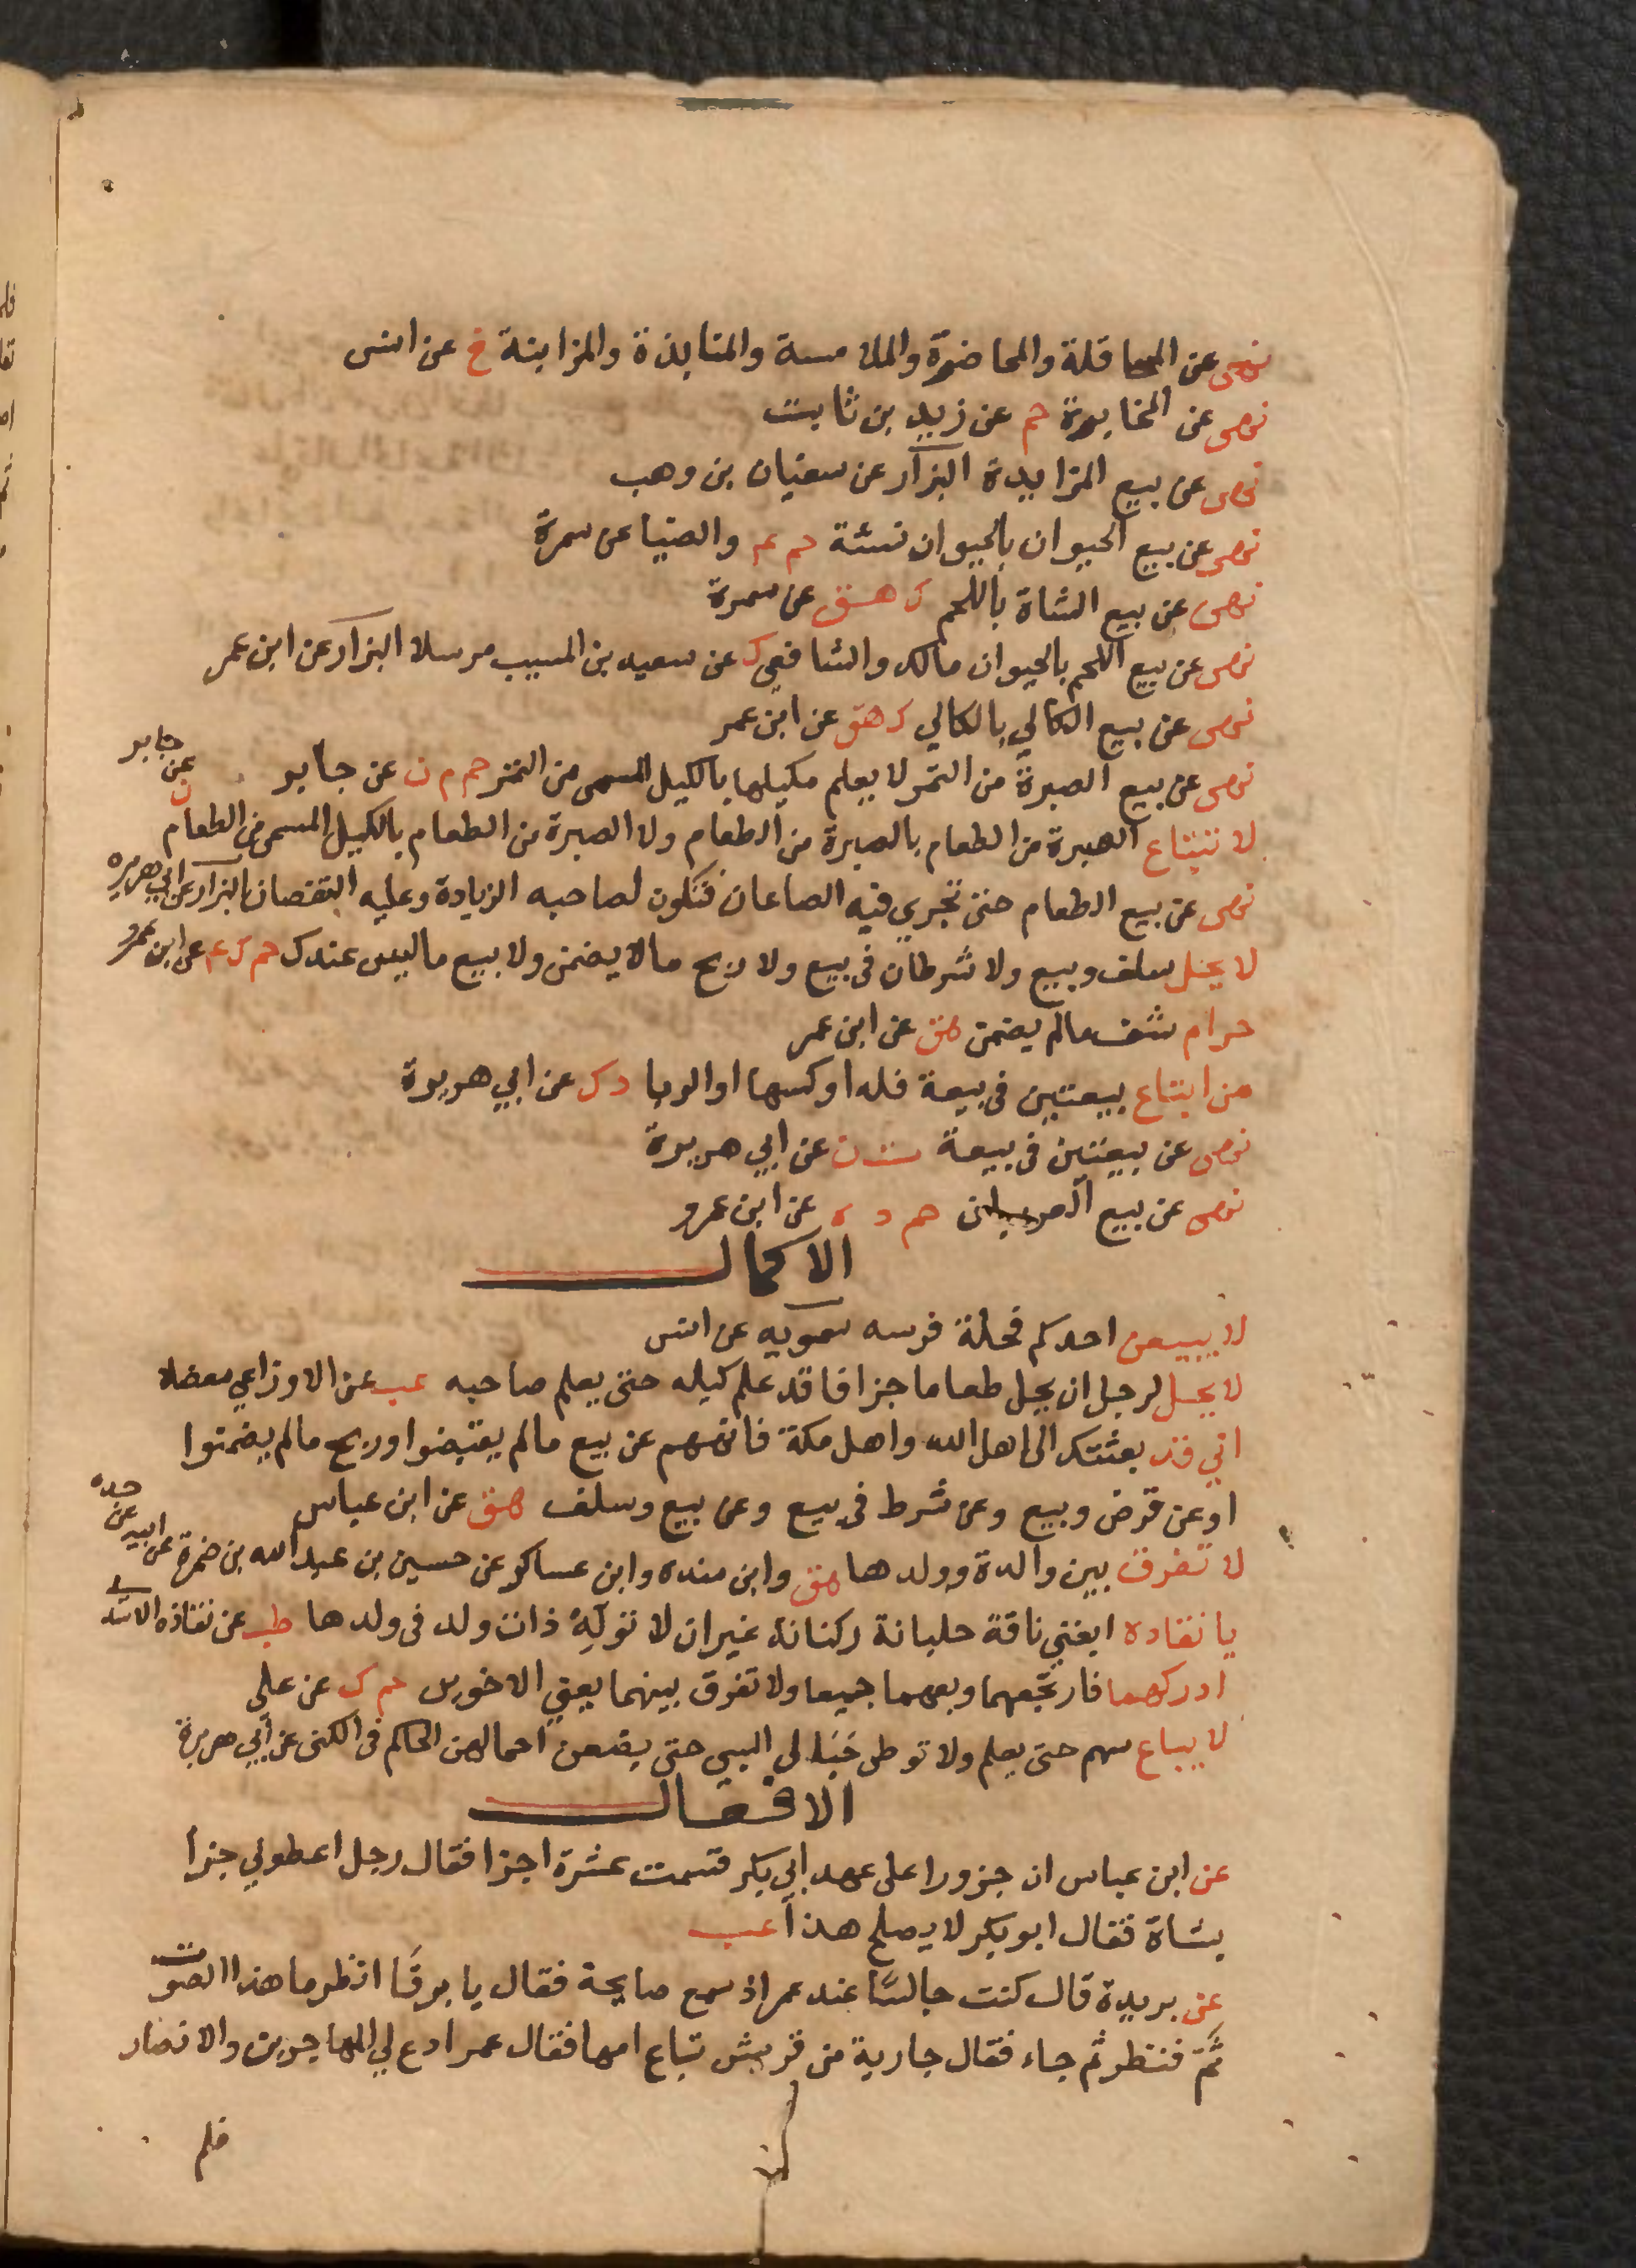 نهى عن المحاقلة والمخاضرة والملامسة والمنابذة والمزابنة خ عن انس
نهى عن المخابرة حم عن زيد بن ثابت
نهى عن بيع المزايدة البزار عن سفيان بن وهب
نهى عن بيع الحيوان بالحيوان نسئة حم عم والضيا عن سمرة
نهى عن بيع الشاة باللحم ك هق عن سمرة
نهى عن بيع اللحم بالحيوان مالك والشافعي ك عن سعيد بن المسيب مرسلا البزار عن ابن عمر
نهى عن بيع الكالي بالكالي ك هق عن ابن عمر
نهى عن بيع الصبرة من التمر لا يعلم مكيلها بالكيل المسمى من التمر حم م ن عن جابر
لا تبتاع الصبرة من الطعام بالصبرة من الطعام ولا الصبرة من الطعام بالكيل المسمى من الطعام ن عن جابر
نهى عن بيع الطعام حتى تجري فيه الصاعان فتكون لصاحبه الزيادة وعليه النقصان البزار عن ابي هريرة
لا يحل سلف وبيع ولا شرطان في بيع ولا ربح مالا يضمن ولا بيع ماليس عندك حم ك عم عن ابن عمرو
حرام شف مالم يضمن هق عن ابن عمر
من ابتاع بيعتين في بيعة فله اوكسها او الربا د ك عن ابي هريرة
نهى عن بيعتين في بيعة ت ن عن ابي هريرة
نهى عن بيع حم د ه عن ابن عمرو
الاكمال
لا يبيعن احدكم فحلة فرسه سمويه عن انس
لا يحل لرجل ان يحل طعاما جزافا قد علم كيله حتى يعلم صاحبه عب عن الاوزاعي معضلا
اني قد بعثتك الى اهل الله واهل مكة فانههم عن بيع مالم يقبضوا وربح مالم يضمنوا
او عن قرض وبيع وعن شرط في بيع وعن بيع وسلف هق عن ابن عباس
لا تفرق بين والدة وولدها هق وابن منده وابن عساكر عن حسين بن عبد الله بن ضمرة عن ابيه عن جده
يا نقاده ابغني ناقة حلبانة ركنانة غير ان لا تولّه ذات ولد في ولدها طب عن نقاده الاسدي
ادركهما فارتجعهما وبعهما جميعا ولا تفرق بينهما يعني الاخوين حم ك عن علي
لا يباع سهم حتى يعلم ولا توطى حبالى السبي حتى يضعن احمالهن الحاكم في الكنى عن ابي هريرة
الافعال
عن ابن عباس ان جزورا على عهد ابي بكر قسمت عشرة اجزا فقال رجل اعطوني جزا
بشاة فقال ابو بكر لا يصلح هذا عب
عن بريدة قال كنت جالسا عند عمر اذ سمع صايحة فقال يا يرفا انظر ما هذا الصوت
ثم فنظر ثم جاء فقال جارية من قريش تباع امها فقال عمر ادع لي المهاجرين والانصار
فلم